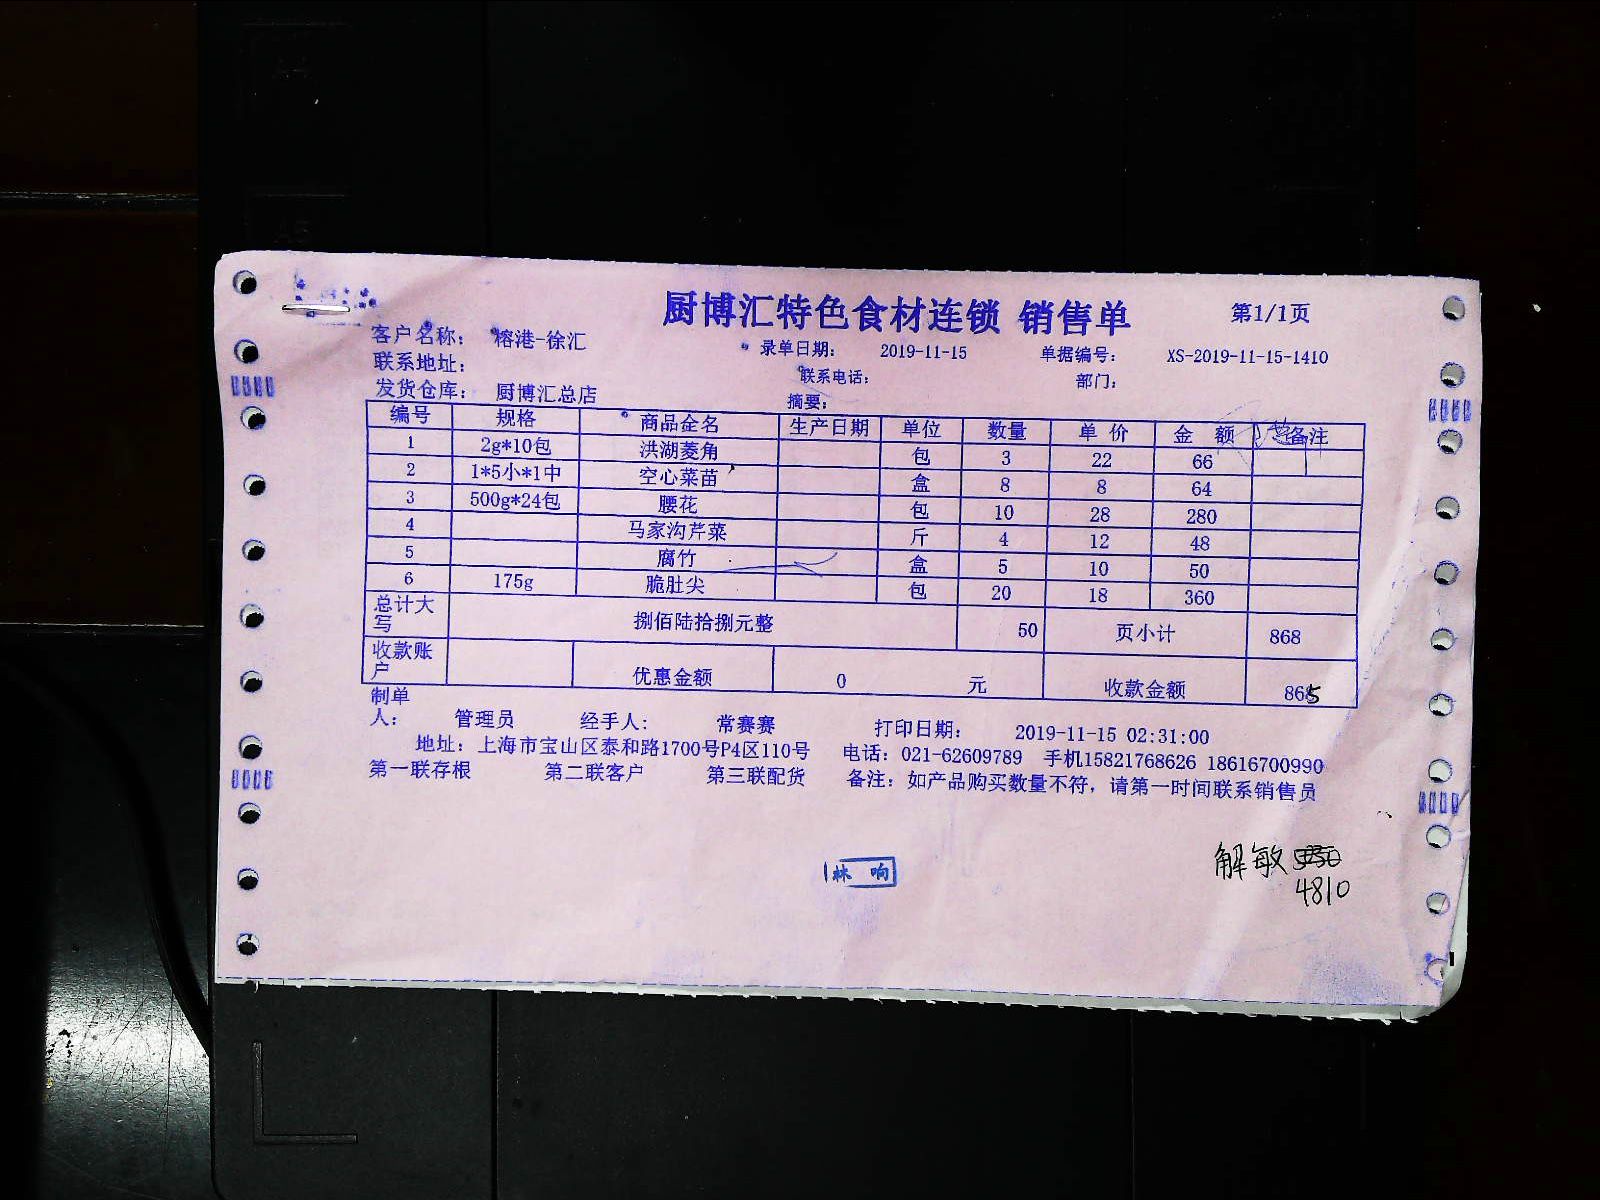 厨博汇特色食材连锁 销售单 第1/1页
客户名称: 榕港-徐汇 录单日期: 2019-11-15 单据编号: XS-2019-11-15-1410
联系地址: 联系电话: 部门:
发货仓库: 厨博汇总店 摘要:
编号 规格 商品全名 生产日期 单位 数量 单价 金额 备注
1 2g*10包 洪湖菱角 包 3 22 66
2 1*5小*1中 空心菜苗 盒 8 8 64
3 500g*24包 腰花 包 10 28 280
4 马家沟芹菜 斤 4 12 48
5 腐竹 盒 5 10 50
6 175g 脆肚尖 包 20 18 360
总计大写 捌佰陆拾捌元整 50 页小计 868
收款账户 优惠金额 0 元 收款金额 865
制单人: 管理员 经手人: 常赛赛 打印日期: 2019-11-15 02:31:00
地址: 上海市宝山区泰和路1700号P4区110号 电话: 021-62609789 手机15821768626 18616700990
第一联存根 第二联客户 第三联配货 备注: 如产品购买数量不符, 请第一时间联系销售员
林 响
解敏
4810